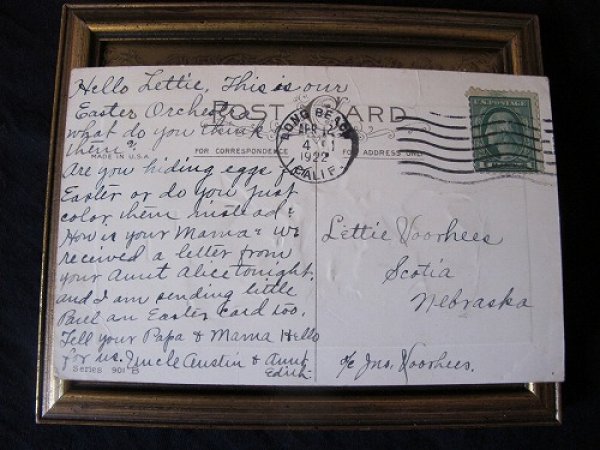 Hello Lettie, This is our
Easter Orchestra
what do you think of
them?
Are you hiding eggs for
Easter or do you just
color them instead?
How is your Mama? We
received a letter from
your Aunt Alice tonight,
and I am sending little
Paul an Easter card too.
Tell your Papa & Mama Hello
for us. Uncle Austin & Aunt
Edith.
Series 901 B
POST CARD
MADE IN U.S.A.
FOR CORRESPONDENCE
FOR ADDRESS ONLY
LONG BEACH
APR 12
4
1922
CALIF.
U.S. POSTAGE
Lettie Voorhees
Scotia
Nebraska
c/o Jno. Voorhees.